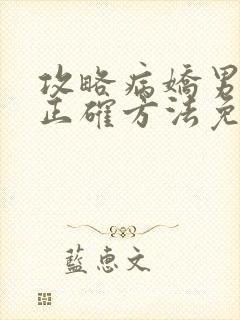 攻略病嬌男
正確方法免
藍惠文